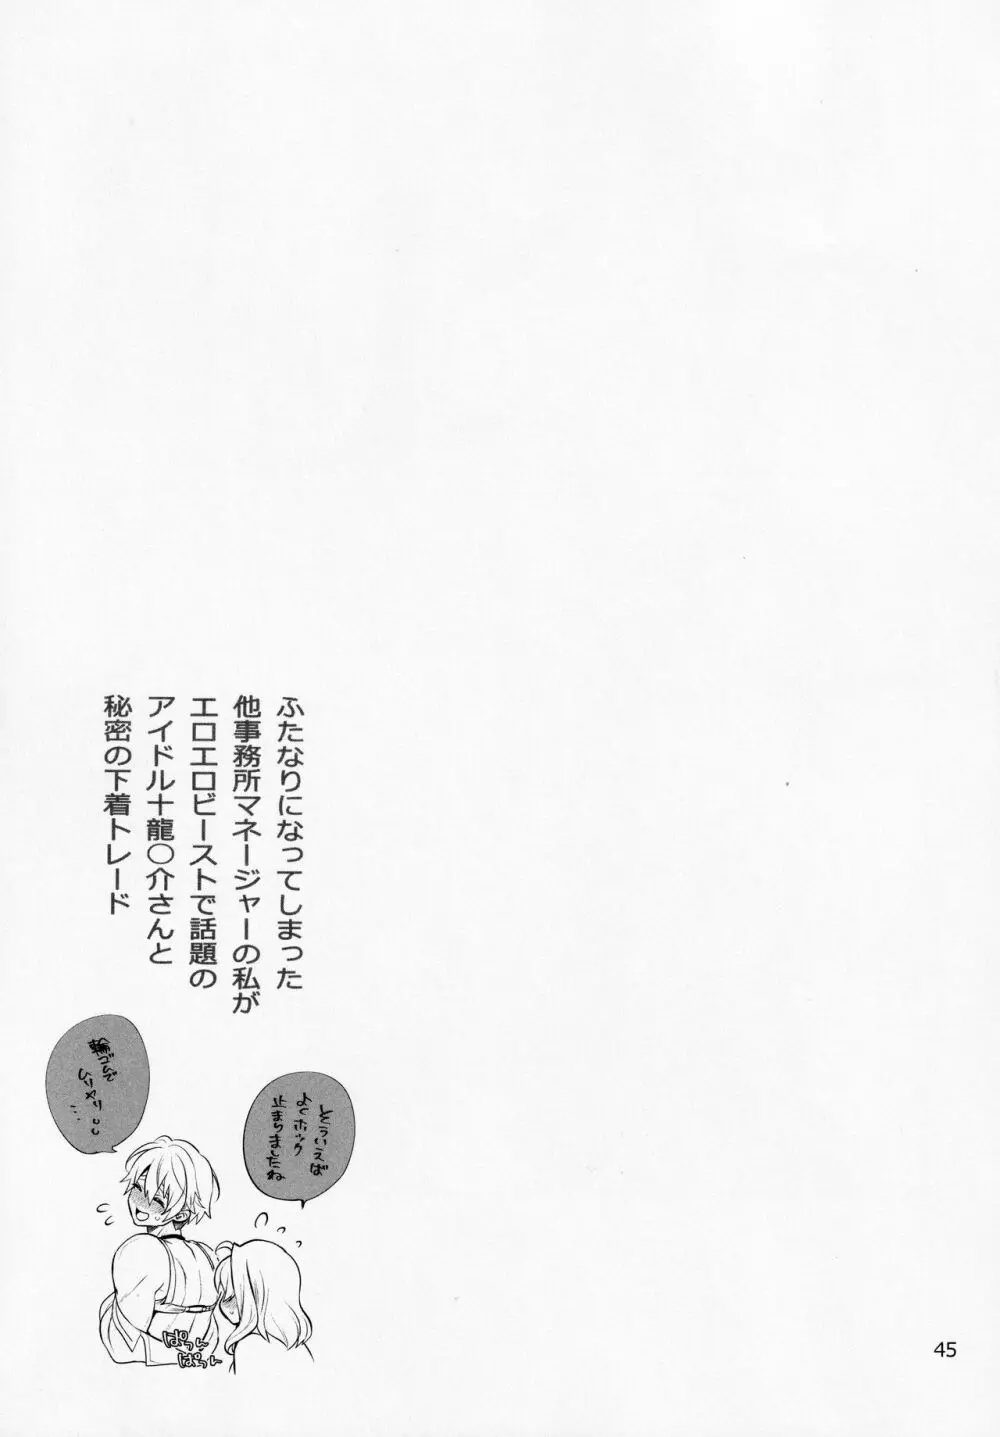 ふたなりになってしまった
他事務所マネージャーの私が
エロエロビーストで話題の
アイドル十龍〇介さんと
秘密の下着トレード
そういえば
よくホック
止まりましたね
輪ゴムで
ムリヤリ
ぱつん
ぱつん
45